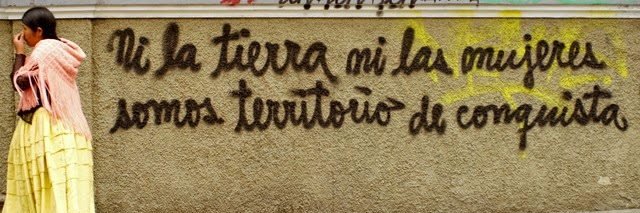 Ni la tierra ni las mujeres
somos territorio de conquista